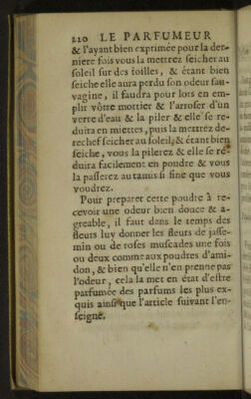 220 LE PARFUMEUR
& l'ayant bien exprimée pour la der-
niere fois vous la mettrez seicher au
soleil sur des toilles, & étant bien
seiche elle aura perdu son odeur sau-
vagine, il faudra pour lors en em-
plir vôtre mortier & l'arroser d'un
verre d'eau & la piler & elle se re-
duira en miettes, puis la mettrez de-
rechef seicher au soleil, & étant bien
seiche, vous la pilerez & elle se re-
duira facilement en poudre & vous
la passerez au tamis si fine que vous
voudrez.
Pour preparer cette poudre à re-
cevoir une odeur bien douce & a-
greable, il faut dans le temps des
fleurs luy donner les fleurs de jasse-
min ou de roses muscades une fois
ou deux comme aux poudres d'ami-
don, & bien qu'elle n'en prenne pas
l'odeur, cela la met en état d'estre
parfumée des parfums les plus ex-
quis ainsi que l'article suivant l'en-
seigne.